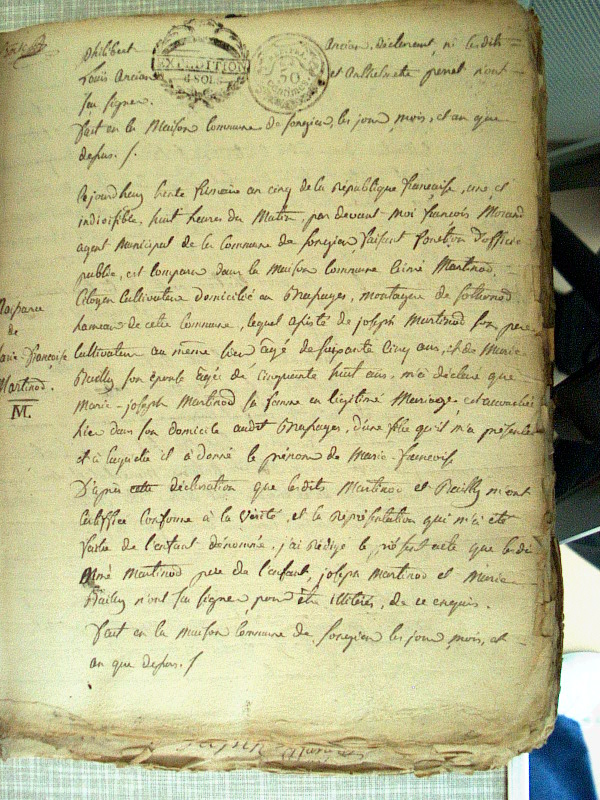 philibert Ancian, déclarent, ni les dits
Louis Ancian et Anthelmette perret n'ont
su signer.
fait en la Maison Commune de Songieu, les jour, mois, et an que
depus. /.
EXPEDITION
4 SOLS
50
Centimes
Naissance
de
Marie-françoise
Martinod.
M.
Cejourdhuy trente frimaire an cinq de la république française, une et
indivisible, huit heures du Matin, par devant Moi françois Morand
agent Municipal de la Commune de Songieu, faisant fonction d'officier
public, est comparu dans la Maison Commune Aimé Martinod,
Citoyen Cultivateur domicilié en montagne de
hameau de cette Commune, lequel assisté de joseph Martinod son pere
Cultivateur au même lieu agé de soixante cinq ans, et de Marie
Bailly son épouse agée de Cinquante huit ans, m'a déclaré que
Marie-joseph Martinod sa femme en légitime Mariage, est accouchée
hier dans son domicile audit d'une fille qu'il m'a présentée
et à laquelle il a donné le prénom de Marie-françoise
D'après cette déclaration que lesdits Martinod et Bailly m'ont
Certifiée Conforme à la Vérité, et la représentation qui m'a été
faite de l'enfant dénommée, j'ai rédigé le présent acte que ledit
Aimé Martinod pere de l'enfant, joseph Martinod et Marie
Bailly n'ont su signer pour être illitérés, de ce enquis.
fait en la Maison Commune de Songieu les jour, mois, et
an que depus. /